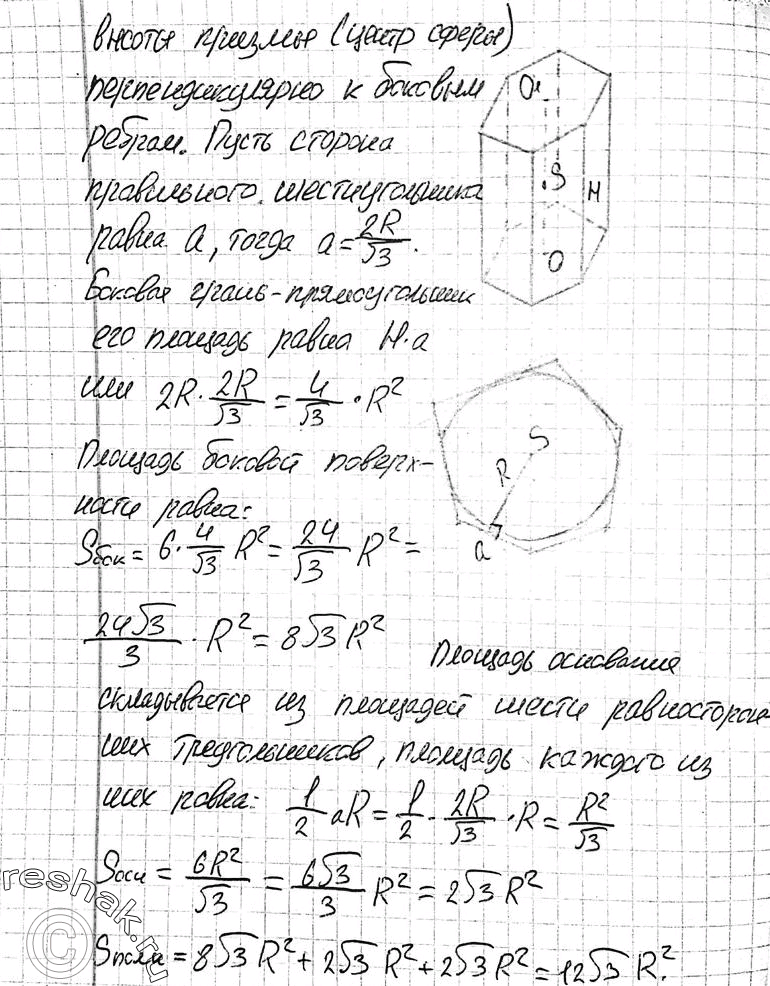 высоты призмы (центр сферы)
перпендикулярно к боковым
ребрам. Пусть сторона
правильного шестиугольника
равна a, тогда a=2R/√3.
Боковая грань-прямоугольник
его площадь равна H·a
или 2R·2R/√3=4/√3·R²
Площадь боковой поверх-
ности равна:
Sбок=6·4/√3 R²=24/√3 R²=
24√3/3·R²=8√3R²
Площадь основания
складывается из площадей шести равносторон-
них треугольников, площадь каждого из
них равна: 1/2 aR=1/2·2R/√3·R=R²/√3
Sосн=6R²/√3=6√3/3 R²=2√3R²
Sполн=8√3R²+2√3R²+2√3R²=12√3R².
O₁
S
H
O
S
R
a
reshak.ru
©